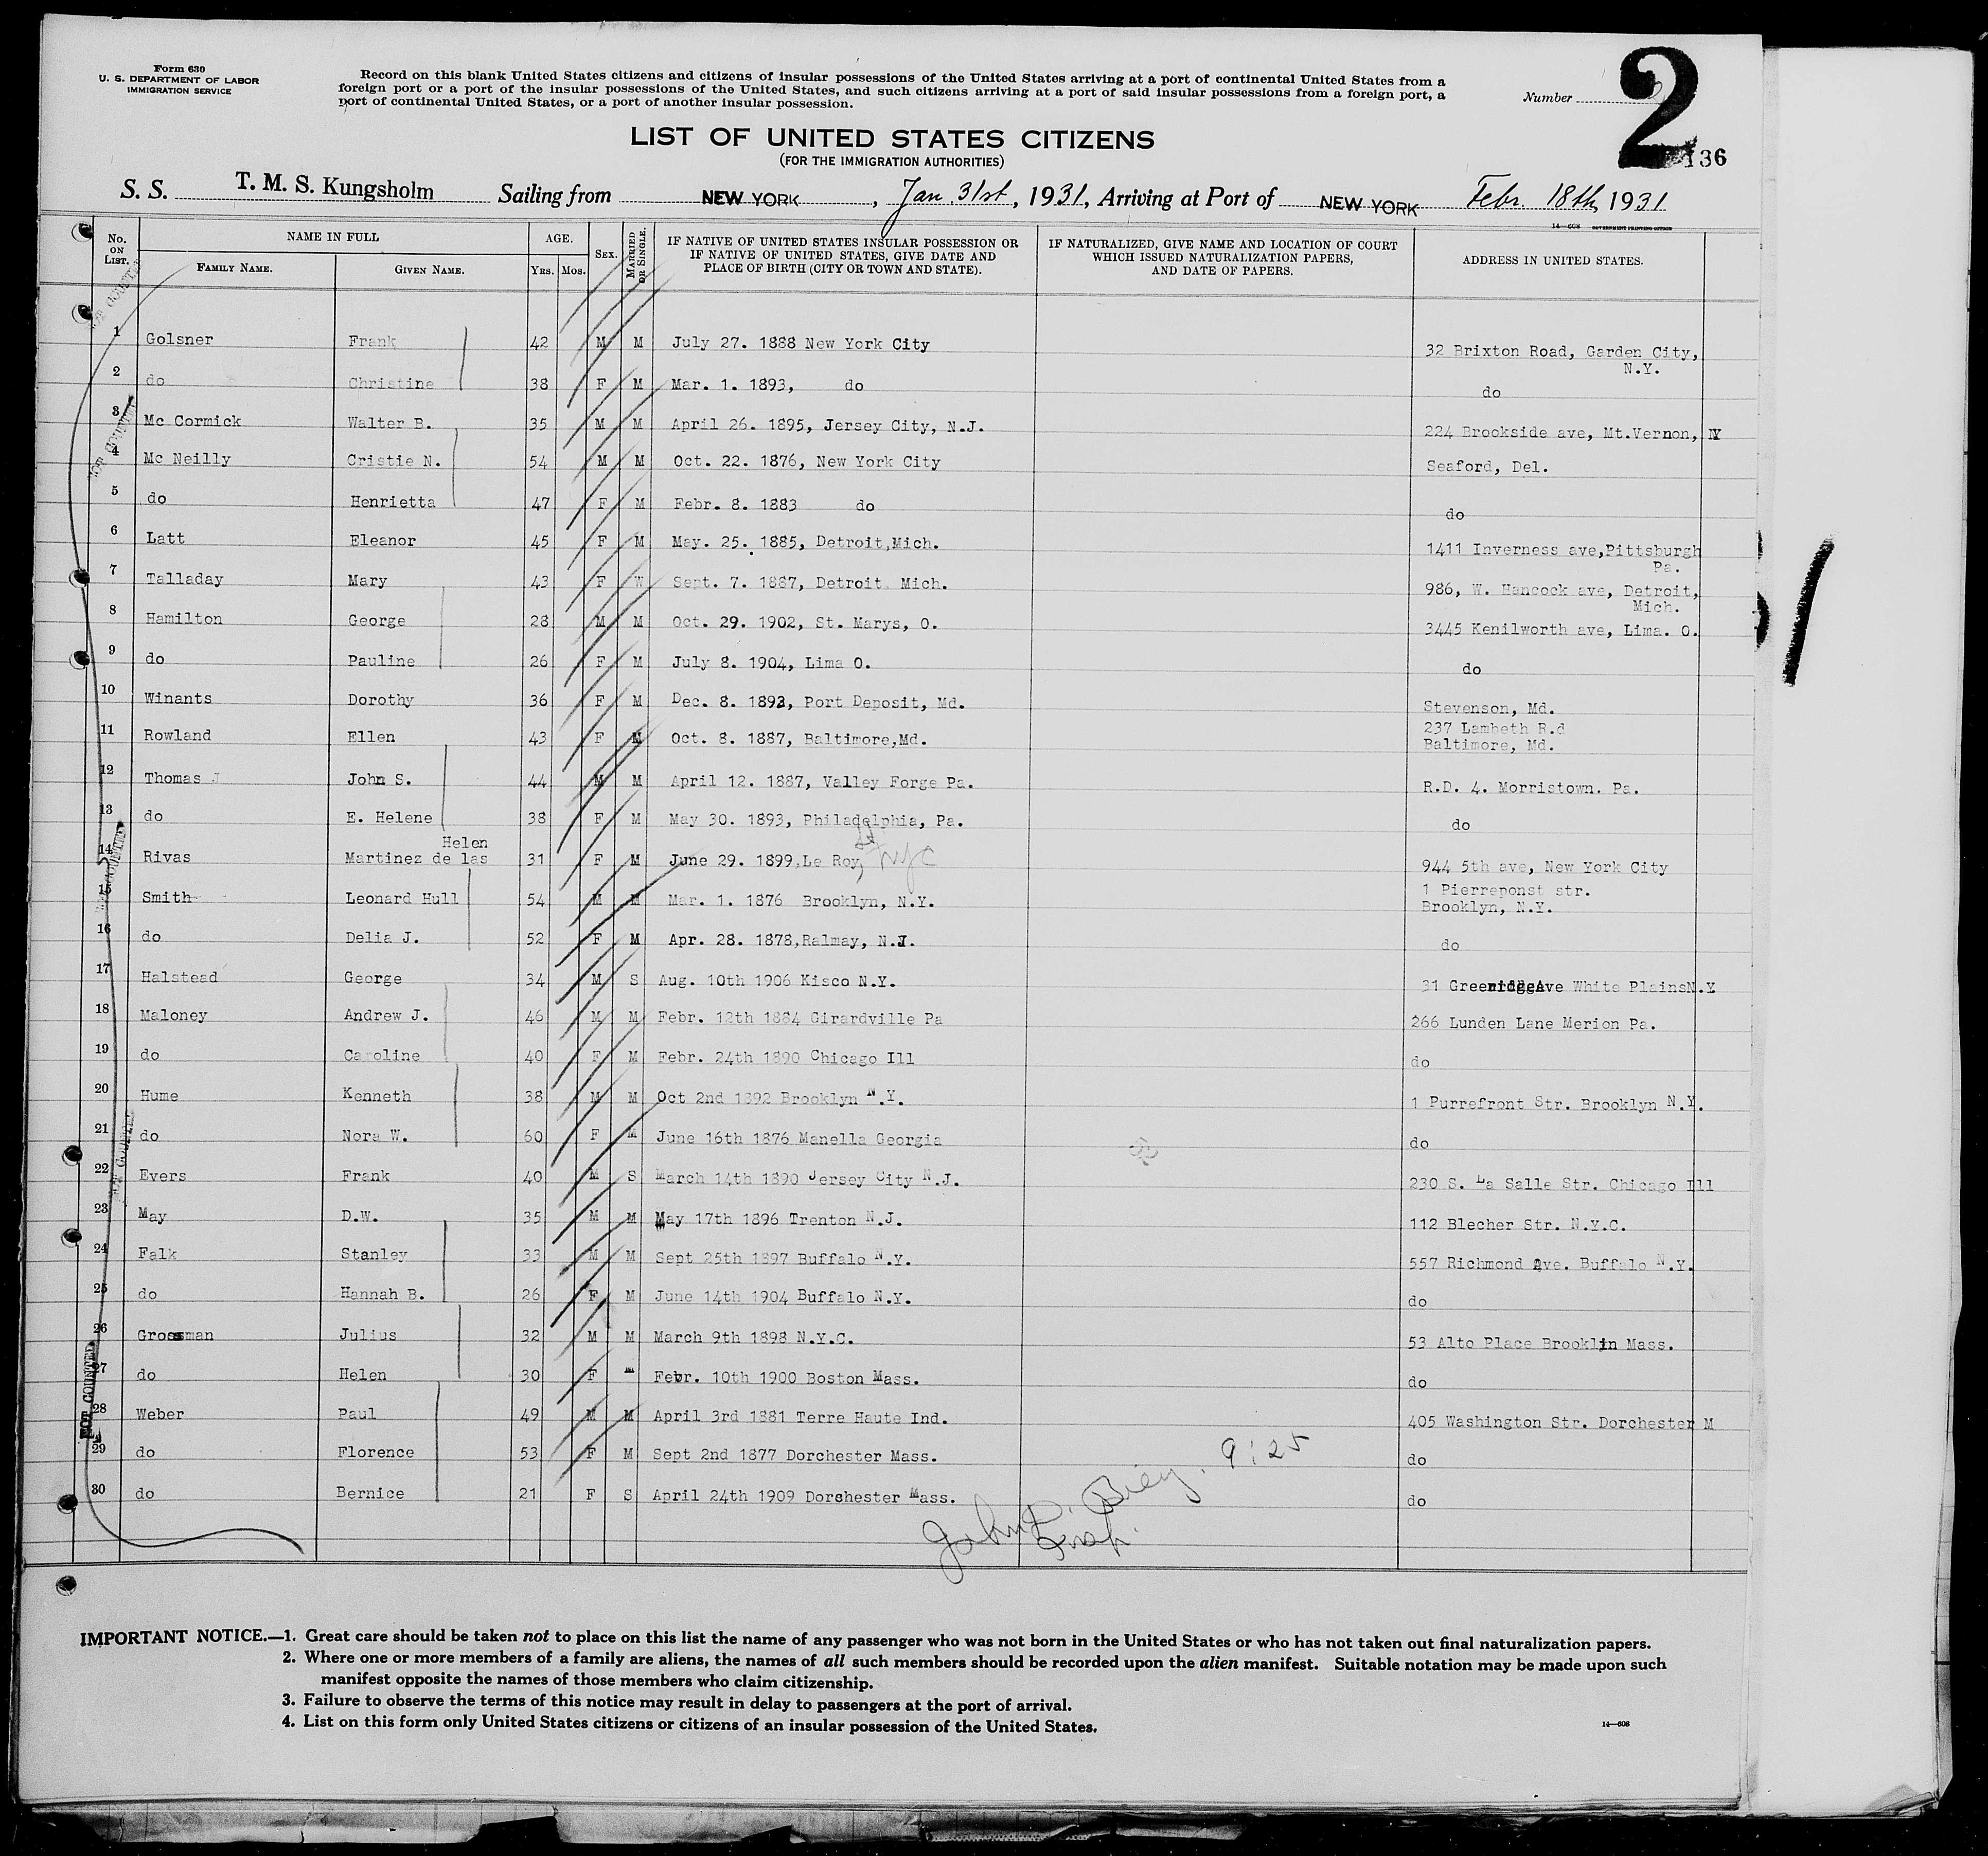 Form 630
U. S. DEPARTMENT OF LABOR
IMMIGRATION SERVICE
Record on this blank United States citizens and citizens of insular possessions of the United States arriving at a port of continental United States from a
foreign port or a port of the insular possessions of the United States, and such citizens arriving at a port of said insular possessions from a foreign port, a
port of continental United States, or a port of another insular possession.
Number 2
2
136
LIST OF UNITED STATES CITIZENS
(FOR THE IMMIGRATION AUTHORITIES)
S. S. T. M. S. Kungsholm Sailing from NEW YORK, Jan 31st, 1931, Arriving at Port of NEW YORK Febr. 18th, 1931
14—608 GOVERNMENT PRINTING OFFICE
No. ON LIST. NAME IN FULL AGE. SEX. MARRIED OR SINGLE. IF NATIVE OF UNITED STATES INSULAR POSSESSION OR IF NATIVE OF UNITED STATES, GIVE DATE AND PLACE OF BIRTH (CITY OR TOWN AND STATE). IF NATURALIZED, GIVE NAME AND LOCATION OF COURT WHICH ISSUED NATURALIZATION PAPERS, AND DATE OF PAPERS. ADDRESS IN UNITED STATES.
FAMILY NAME. GIVEN NAME. YRS. MOS.
1 Golsner Frank 42 M M July 27. 1888 New York City 32 Brixton Road, Garden City, N.Y.
2 do Christine 38 F M Mar. 1. 1893, do do
3 Mc Cormick Walter B. 35 M M April 26. 1895, Jersey City, N.J. 224 Brookside ave, Mt.Vernon, NY
4 Mc Neilly Cristie N. 54 M M Oct. 22. 1876, New York City Seaford, Del.
5 do Henrietta 47 F M Febr. 8. 1883 do do
6 Latt Eleanor 45 F M May. 25. 1885, Detroit,Mich. 1411 Inverness ave,Pittsburgh Pa.
7 Talladay Mary 43 F W Sept. 7. 1887, Detroit Mich. 986, W. Hancock ave, Detroit, Mich.
8 Hamilton George 28 M M Oct. 29. 1902, St. Marys, O. 3445 Kenilworth ave, Lima. O.
9 do Pauline 26 F M July 8. 1904, Lima O. do
10 Winants Dorothy 36 F M Dec. 8. 1893, Port Deposit, Md. Stevenson, Md.
11 Rowland Ellen 43 F M Oct. 8. 1887, Baltimore,Md. 237 Lambeth R.d Baltimore, Md.
12 Thomas J John S. 44 M M April 12. 1887, Valley Forge Pa. R.D. 4. Morristown. Pa.
13 do E. Helene 38 F M May 30. 1893, Philadelphia, Pa. do
14 Rivas Martinez de las Helen 31 F M June 29. 1899,Le Roy, NYC 944 5th ave, New York City
15 Smith Leonard Hull 54 M M Mar. 1. 1876 Brooklyn, N.Y. 1 Pierreponst str. Brooklyn, N.Y.
16 do Delia J. 52 F M Apr. 28. 1878,Ralmay, N.J. do
17 Halstead George 34 M S Aug. 10th 1906 Kisco N.Y. 31 GreenridgeAve White PlainsN.Y.
18 Maloney Andrew J. 46 M M Febr. 12th 1884 Girardville Pa 266 Lunden Lane Merion Pa.
19 do Caroline 40 F M Febr. 24th 1890 Chicago Ill do
20 Hume Kenneth 38 M M Oct 2nd 1892 Brooklyn N.Y. 1 Purrefront Str. Brooklyn N.Y.
21 do Nora W. 60 F M June 16th 1876 Manella Georgia do
22 Evers Frank 40 M S March 14th 1890 Jersey City N.J. 230 S. La Salle Str. Chicago Ill
23 May D.W. 35 M M May 17th 1896 Trenton N.J. 112 Blecher Str. N.Y.C.
24 Falk Stanley 33 M M Sept 25th 1897 Buffalo N.Y. 557 Richmond Ave. Buffalo N.Y.
25 do Hannah B. 26 F M June 14th 1904 Buffalo N.Y. do
26 Grossman Julius 32 M M March 9th 1898 N.Y.C. 53 Alto Place Brooklin Mass.
27 do Helen 30 F M Febr. 10th 1900 Boston Mass. do
28 Weber Paul 49 M M April 3rd 1881 Terre Haute Ind. 405 Washington Str. Dorchester M
29 do Florence 53 F M Sept 2nd 1877 Dorchester Mass. do
30 do Bernice 21 F S April 24th 1909 Dorchester Mass. do
NOT COUNTED
John 9:25
Insp.
IMPORTANT NOTICE.—1. Great care should be taken not to place on this list the name of any passenger who was not born in the United States or who has not taken out final naturalization papers.
2. Where one or more members of a family are aliens, the names of all such members should be recorded upon the alien manifest. Suitable notation may be made upon such
manifest opposite the names of those members who claim citizenship.
3. Failure to observe the terms of this notice may result in delay to passengers at the port of arrival.
4. List on this form only United States citizens or citizens of an insular possession of the United States.
14—608